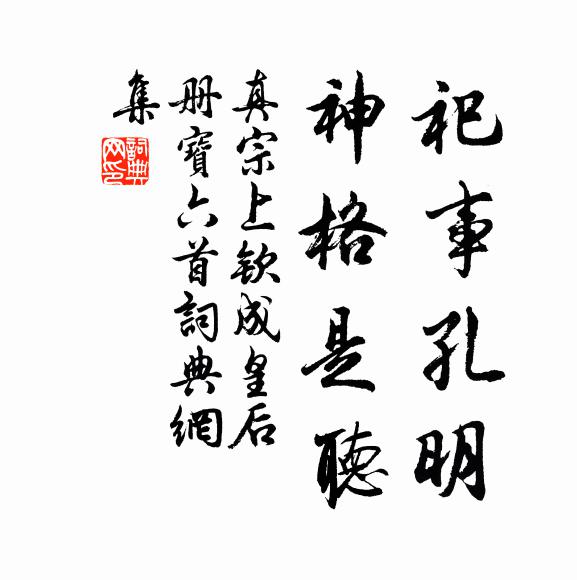 祀事孔明
神格是聽
真宗上欽成皇后
册寶六首詞典網
集
詞典
网印